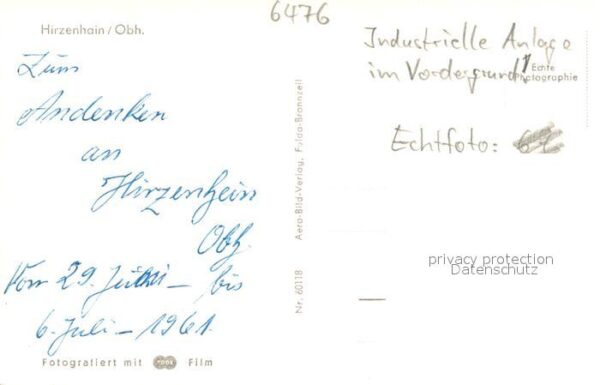 Hirzenhain / Obh.
6476
Zum
Andenken
an
Hirzenhein
Obh.
Vom 29. Juni – bis
6. Juli – 1961.
Fotografiert mit Film
Nr. 60118 Aero-Bild-Verlag, Fulda-Bronnzell
Industrielle Anlage
im Vordergrund!
Echte
Photographie
Echtfoto:
privacy protection
Datenschutz